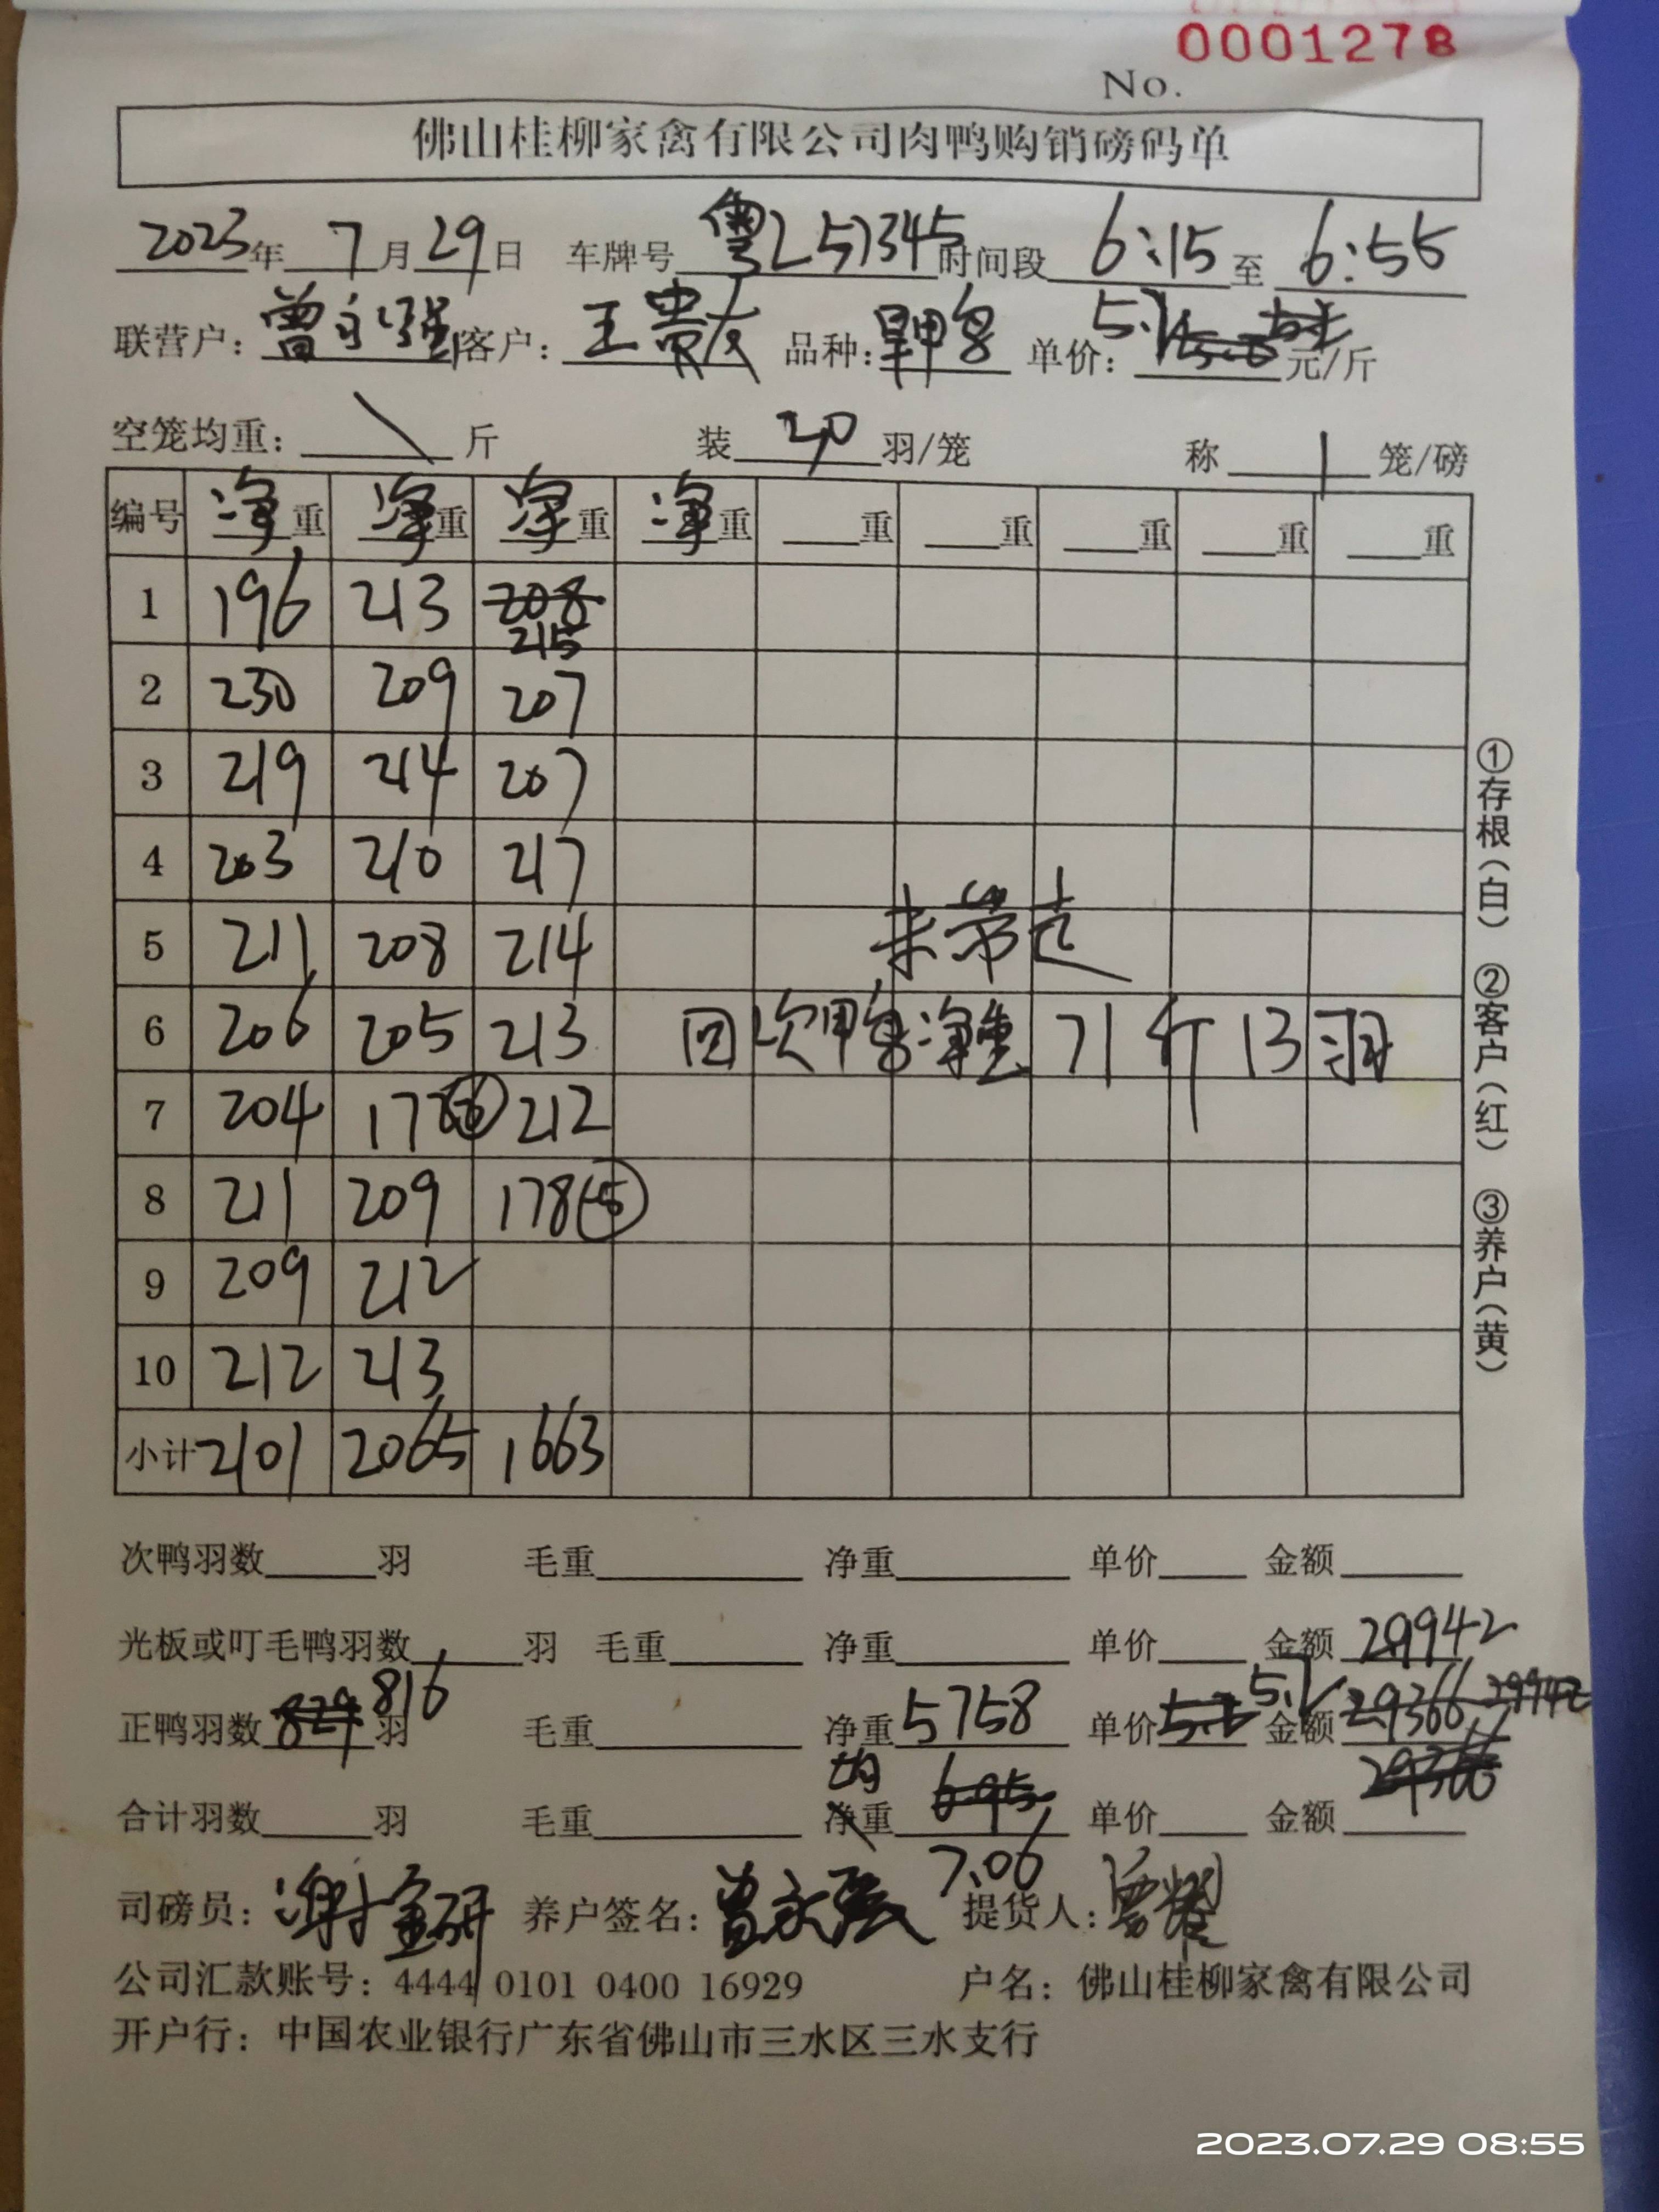 0001278
No.
佛山桂柳家禽有限公司肉鸭购销磅码单
2023年 7月29日 车牌号 粤L51345 时间段 6:15 至 6:55
联营户: 曾永强 客户: 王贵友 品种: 单价: 5.2 元/斤
空笼均重: \ 斤 装 20 羽/笼 称 1 笼/磅
编号 净重 净重 净重 净重 重 重 重 重 重
1 196 213 208 215
2 230 209 207
3 219 214 207
4 203 210 217
5 211 208 214 未带走
6 206 205 213 回次鸭净重 71斤 13羽
7 204 172 212
8 211 209 178(-5)
9 209 212
10 212 213
小计 2101 2065 1663
次鸭羽数 羽 毛重 净重 单价 金额
光板或叮毛鸭羽数 羽 毛重 净重 单价 金额 29942
正鸭羽数 829 816 羽 毛重 净重 5758 单价 5.2 金额 29366 29942
29366
合计羽数 羽 毛重 均 净重 695 单价 金额
7.06
司磅员: 谢金研 养户签名: 曾永强 提货人:
公司汇款账号: 4444 0101 0400 16929 户名: 佛山桂柳家禽有限公司
开户行: 中国农业银行广东省佛山市三水区三水支行
①存根(白) ②客户(红) ③养户(黄)
2023.07.29 08:55